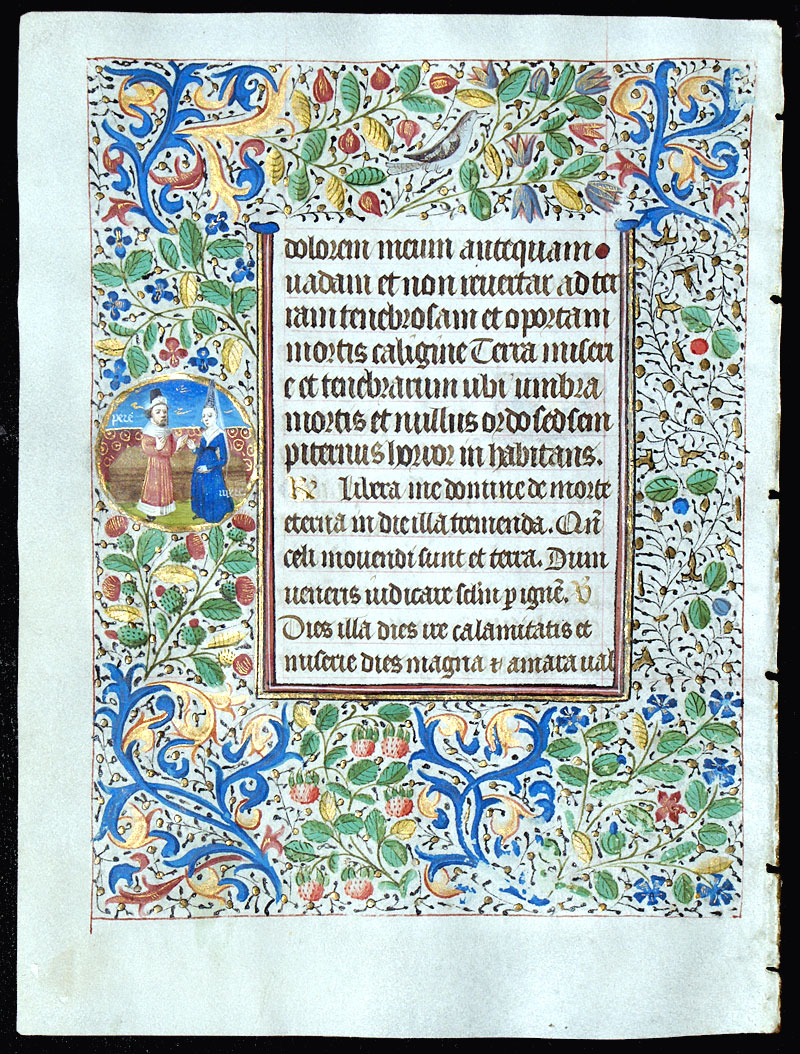 dolorem meum antequam
uadam et non reuertar ad ter
ram tenebrosam et opertam
mortis caligine Terra miseri
e et tenebrarum ubi umbra
mortis et nullus ordo sed sem
piternus horror in habitans.
R Libera me domine de morte
eterna in die illa tremenda. Qn̄
celi mouendi sunt et terra. Dum
ueneris iudicare sclm p ignē. V
Dies illa dies ire calamitatis et
miserie dies magna et amara ual
pere
mere